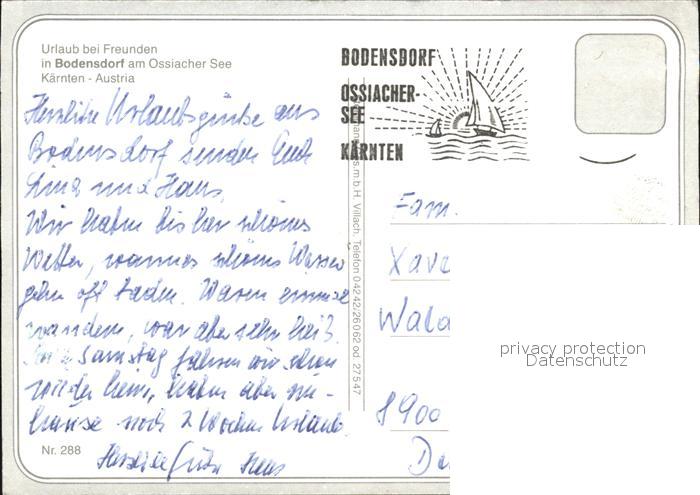 Urlaub bei Freunden
in Bodensdorf am Ossiacher See
Kärnten - Austria
BODENSDORF
OSSIACHER-
SEE
KÄRNTEN
Herzliche Urlaubsgrüße aus
Bodensdorf senden Euch
und Hans.
Wir haben bis her schönes
Wetter, warmes schönes Wasser
gehen oft baden. Waren einmal
wandern, war aber sehr heiß.
Samstag fahren wir schon
wieder heim, haben aber zu-
hause noch 2 Wochen Urlaub.
Herzliche Grüße Hans
Nr. 288
m.b.H. Villach, Telefon 04242/26062 od. 27547
Fam.
Xave
Wald
8900
De
privacy protection
Datenschutz